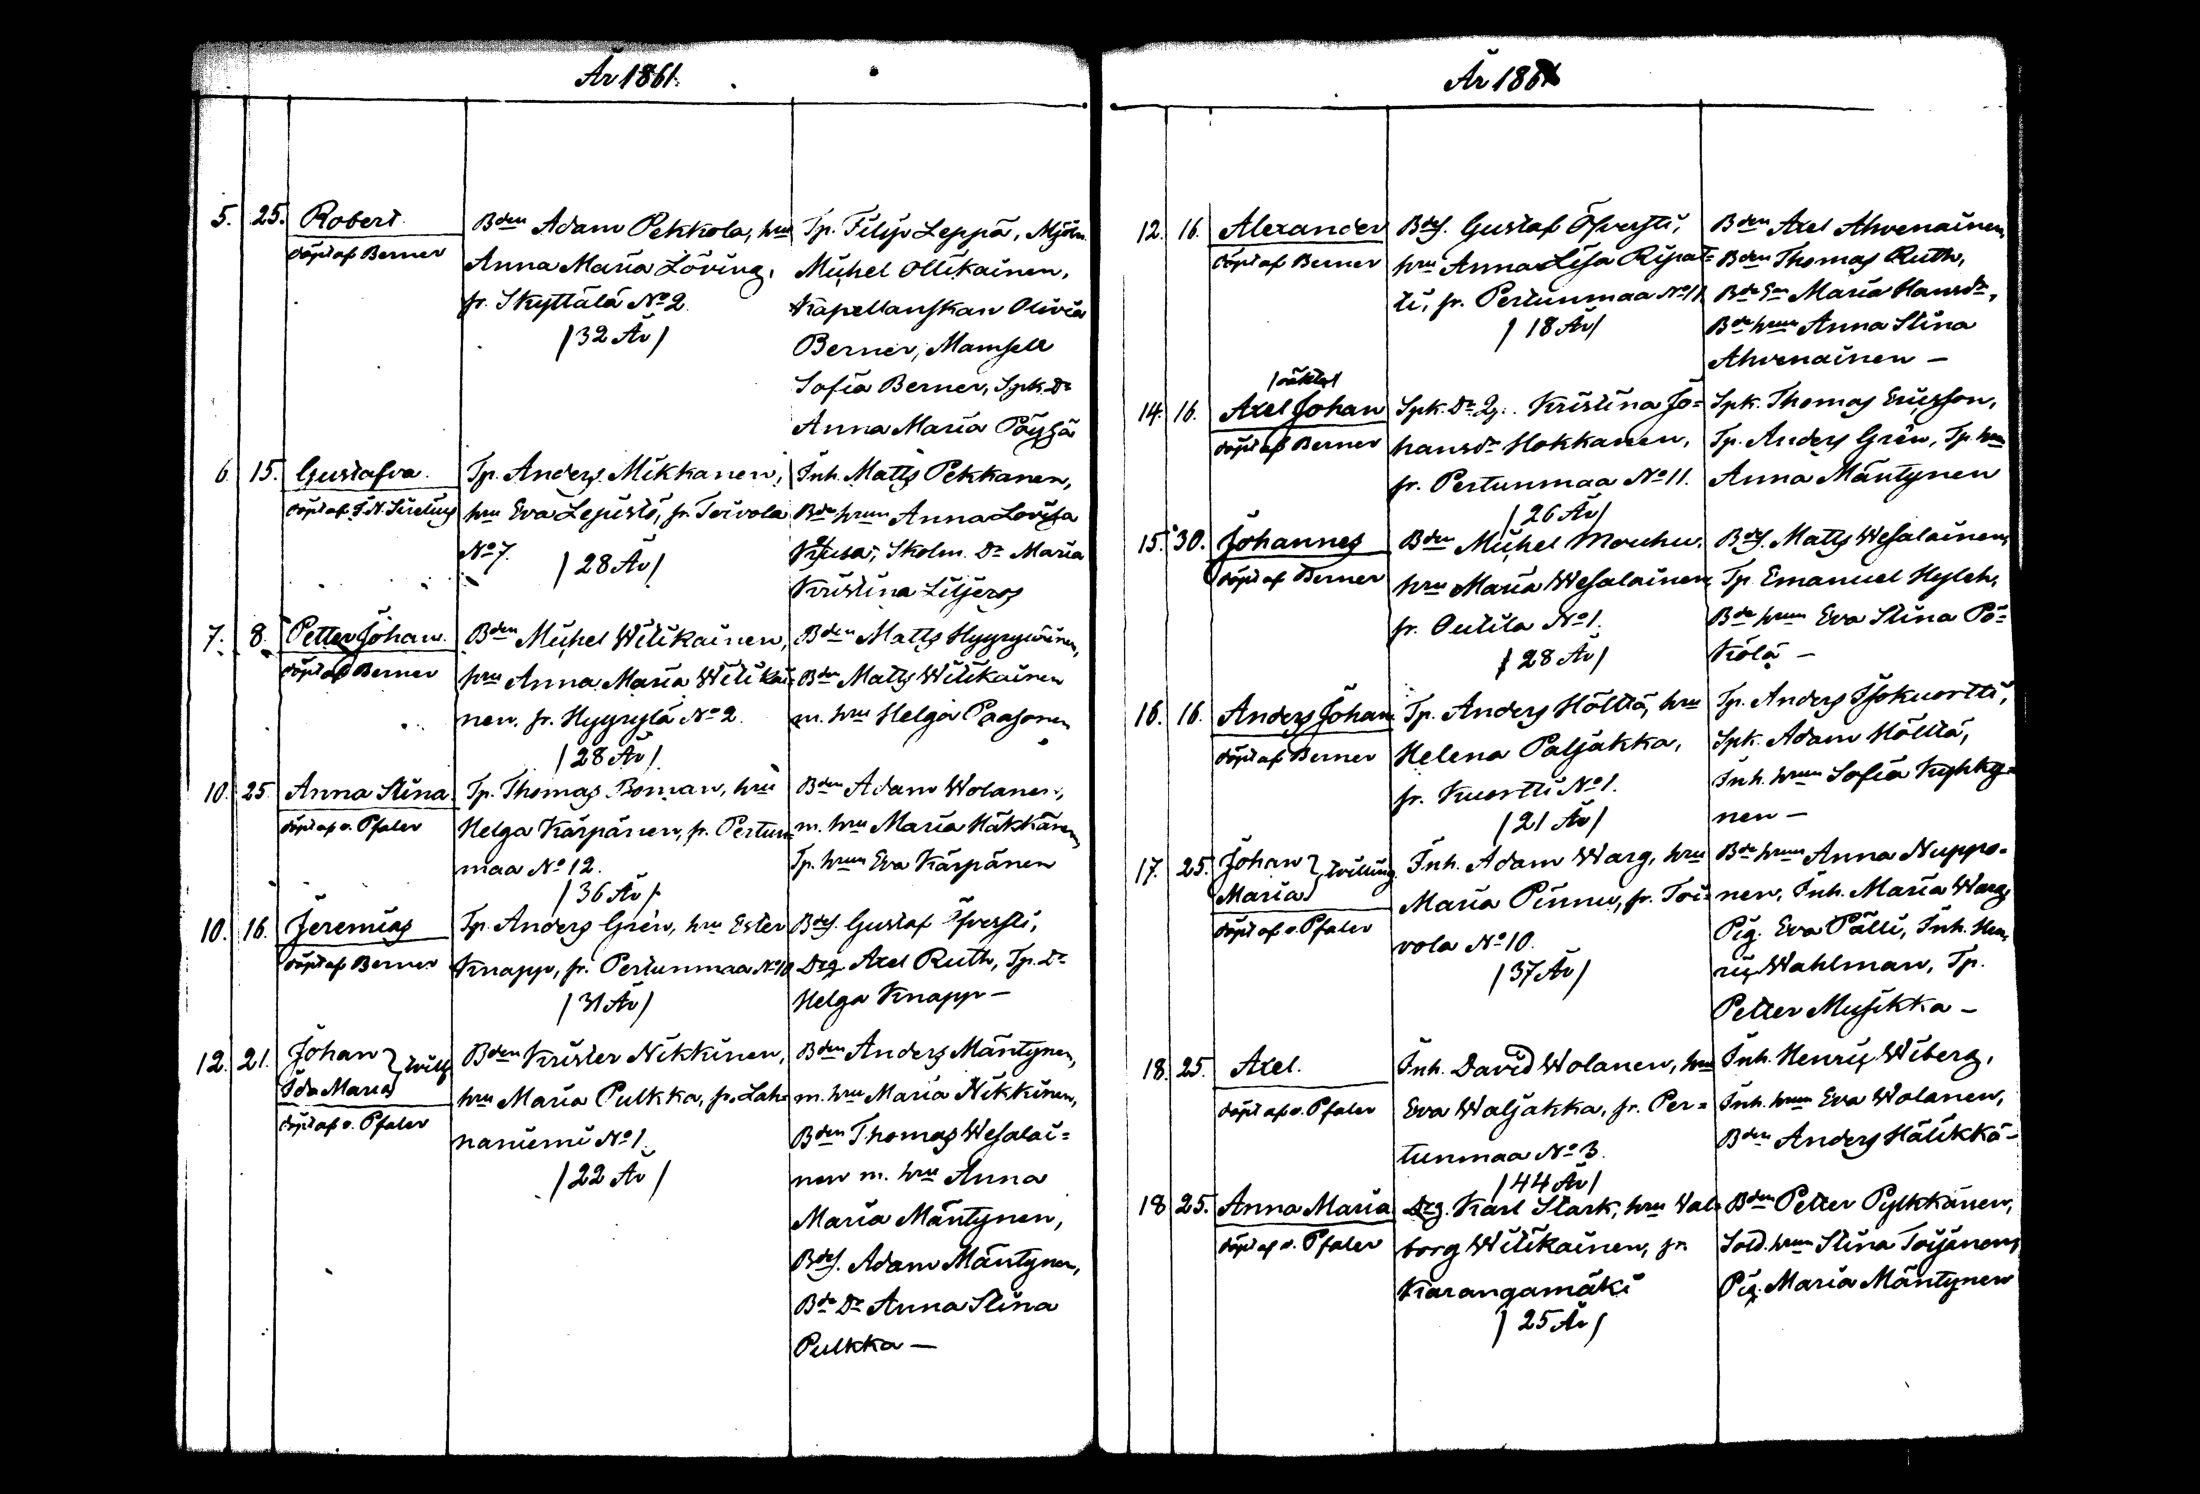 År 1861.
5. 25. Robert
döpt af Berner
Bden Adam Pekkola, hru
Anna Maria Löving,
fr. Skyttälä No 2.
/32 År/
Tp. Filip Leppä, Mjöln.
Michel Ollikainen,
Kapellanskan Olivia
Berner, Mamsell
Sofia Berner, Spk. Dr
Anna Maria Pöyhä
6. 15. Gustafva.
döpt af
Tp. Anders Mikkanen,
hru Eva Lepistö, fr. Toivola
No 7. /28 År/
Inh. Matts Pekkanen,
Bde hrun Anna Lovisa
Skolm. Dr Maria
Kristina Liljeros
7. 8. Petter Johan.
döpt af Berner
Bden Michel Wilikainen,
hru Anna Maria Wilikai-
nen. fr. Hyyrylä No 2.
/28 År/
Bden Matts Hyyryläinen,
Bden Matts Wilikainen
m. hru Helga Paasonen
10. 25. Anna Stina
döpt af v. Pfaler
Tp. Thomas Boman, hru
Helga Kärpänen, fr. Pertun-
maa No 12.
/36 År/
Bden Adam Wolanen,
m. hru Maria Häkkänen,
Tp. hrun Eva Kärpänen
10. 16. Jeremias
döpt af Berner
Tp. Anders Grén, hru Ester
Knapp, fr. Pertunmaa No 10
/31 År/
Bdes. Gustaf Öfversti,
Drg. Axel Ruth, Tp. Dr
Helga Knapp —
12. 21. Johan } tvill.
Ida Maria
döpt af v. Pfaler
Bden Krister Nikkinen,
hru Maria Pulkka, fr. Lah-
naniemi No 1.
/22 År/
Bden Anders Mäntynen,
m. hru Maria Nikkinen,
Bden Thomas Wesalai=
nen m. hru Anna
Maria Mäntynen,
Bdes. Adam Mäntynen,
Bde Dr Anna Stina
Pulkka —
År 1861
12. 16. Alexander
döpt af Berner
Bdes. Gustaf Öfversti,
hru Anna Lisa Ripat=
ti, fr. Pertunmaa No 11
/18 År/
Bden Axel Ahvenainen,
Bden Thomas Ruth,
Maria Hansdr,
Bde hrun Anna Stina
Ahvenainen —
/oäkta/
14. 16. Axel Johan
döpt af Berner
Spk. Dr Kristina Jo=
hansdr Hokkanen,
fr. Pertunmaa No 11.
/26 År/
Spk. Thomas Ericsson,
Tp. Anders Grén, Tp. hrun
Anna Mäntynen
15. 30. Johannes
döpt af Berner
Bden Michel Mouhu,
hru Maria Wesalainen,
fr. Outila No 1.
/28 År/
Bdes. Matts Wesalainen,
Tp. Emanuel Hylch,
Bde hrun Eva Stina Pö=
kölä —
16. 16. Anders Johan
döpt af Berner
Tp. Anders Hölttä, hru
Helena Paljakka,
fr. Kuortti No 1.
/21 År/
Tp. Anders Isokuortti,
Spk. Adam Hölttä,
Inh. hrun Sofia Kyhky-
nen —
17. 25. Johan } tvilling.
Maria
döpt af v. Pfaler
Inh. Adam Warg, hru
Maria Pinnu, fr. Toi-
vola No 10.
/37 År/
Bde hrun Anna Nuppo-
nen, Inh. Maria Warg,
Pig. Eva Pälli, Inh. Hen-
ric Wahlman, Tp.
Petter Musikka —
18. 25. Axel.
döpt af v. Pfaler
Inh. David Wolanen, hru
Eva Waljakka, fr. Per=
tunmaa No 3.
/44 År/
Inh. Henric Wiberg,
Inh. hrun Eva Wolanen,
Bden Anders Hälikkä-
18 25. Anna Maria
döpt af v. Pfaler
Drg. Karl Stark, hru Wal-
borg Wilikainen, fr.
Karangamäki
/25 År/
Bden Petter Pylkkänen,
Sold. hrun Stina Toijanen,
Pig. Maria Mäntynen